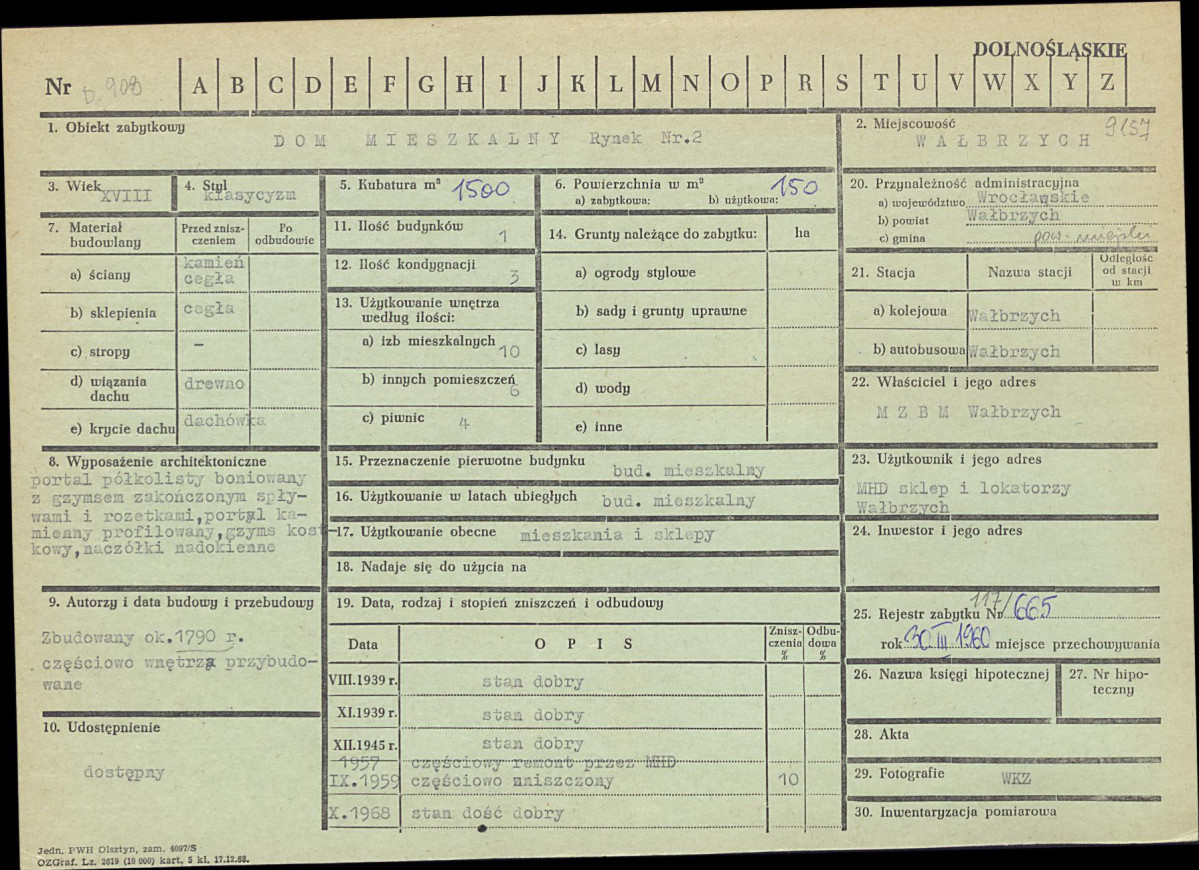 DOLNOŚLĄSKIE
Nr p. 908 A B C D E F G H I J K L M N O P R S T U V W X Y Z
1. Obiekt zabytkowy
DOM MIESZKALNY Rynek Nr.2
2. Miejscowość 9157
WAŁBRZYCH
3. Wiek
XVIII
4. Styl
klasycyzm
5. Kubatura m³ 1500
6. Powierzchnia w m² 150
a) zabytkowa: b) użytkowa:
20. Przynależność administracyjna
a) województwo Wrocławskie
b) powiat Wałbrzych
c) gmina pow. miejski
7. Materiał budowlany
Przed zniszczeniem
Po odbudowie
a) ściany kamień cegła
b) sklepienia cegła
c) stropy –
d) wiązania dachu drewno
e) krycie dachu dachówka
11. Ilość budynków 1
12. Ilość kondygnacji 3
13. Użytkowanie wnętrza według ilości:
a) izb mieszkalnych 10
b) innych pomieszczeń 6
c) piwnic 4
14. Grunty należące do zabytku: ha
a) ogrody stylowe
b) sady i grunty uprawne
c) lasy
d) wody
e) inne
21. Stacja Nazwa stacji Odległość od stacji w km
a) kolejowa Wałbrzych
b) autobusowa Wałbrzych
22. Właściciel i jego adres
MZBM Wałbrzych
8. Wyposażenie architektoniczne
portal półkolisty boniowany
z gzymsem zakończonym spły-
wami i rozetkami,portal ka-
mienny profilowany,gzyms kost-
kowy,naczółki nadokienne
15. Przeznaczenie pierwotne budynku bud. mieszkalny
16. Użytkowanie w latach ubiegłych bud. mieszkalny
17. Użytkowanie obecne mieszkania i sklepy
18. Nadaje się do użycia na
23. Użytkownik i jego adres
MHD sklep i lokatorzy
Wałbrzych
24. Inwestor i jego adres
9. Autorzy i data budowy i przebudowy
Zbudowany ok.1790 r.
częściowo wnętrza przybudo-
wane
10. Udostępnienie
dostępny
19. Data, rodzaj i stopień zniszczeń i odbudowy
Data OPIS Zniszczenia % Odbudowa %
VIII.1939 r. stan dobry
XI.1939 r. stan dobry
XII.1945 r. stan dobry
1957 częściowy remont przez MHD
IX.1959 częściowo zniszczony 10
X.1968 stan dość dobry
25. Rejestr zabytku Nr 117/665
rok 30 III 1960 miejsce przechowywania
26. Nazwa księgi hipotecznej
27. Nr hipoteczny
28. Akta
29. Fotografie WKZ
30. Inwentaryzacja pomiarowa
Jedn. PWH Olsztyn, zam. 4097/S
OZGraf. Lz. 2619 (10 000) kart. 5 kl. 17.12.68.